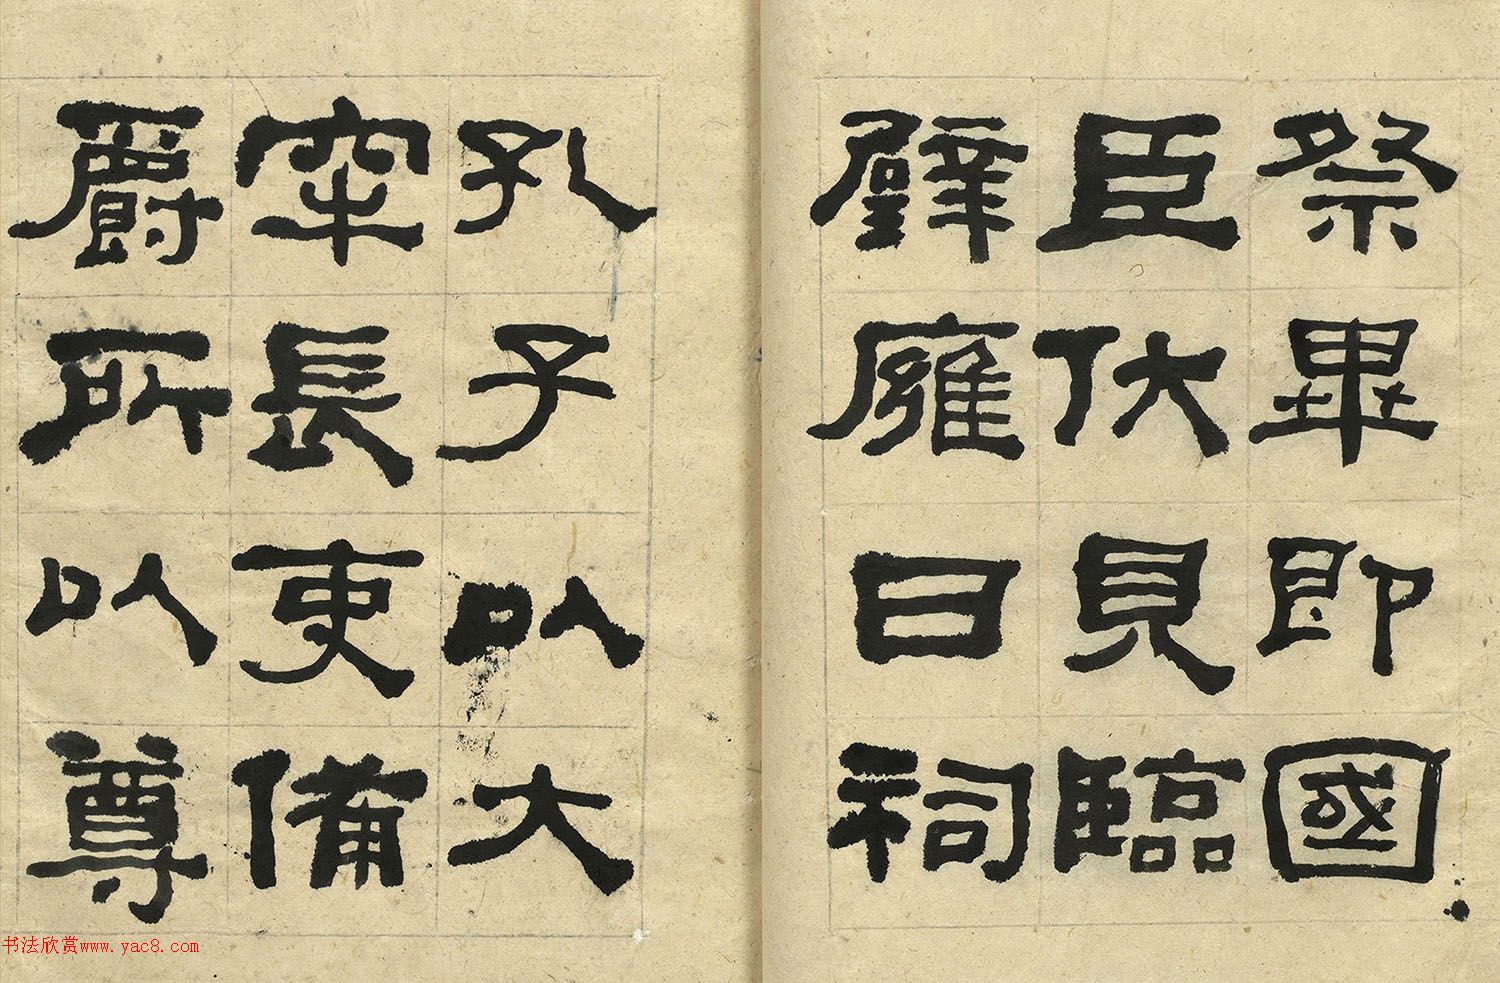 祭畢即國
臣伏見臨
辟廱日祠
孔子以大
牢長吏備
爵所以尊
书法欣赏www.yac8.com